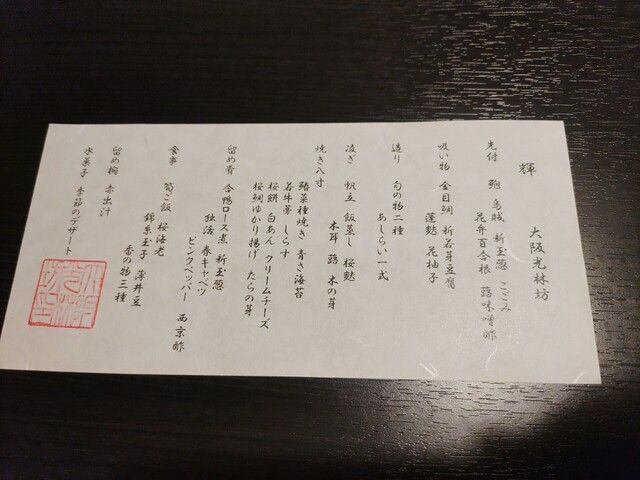 輝
大阪光林坊
先付 鮑 烏賊 新玉葱 こごみ
花弁百合根 蕗味噌酢
吸い物 金目鯛 新若芽豆腐
蓬麩 花柚子
造り 旬の物二種
あしらい一式
凌ぎ 帆立 飯蒸し 桜麩
木耳 蕗 木の芽
焼き八寸
鰆菜種焼き 青さ海苔
若牛蒡 しらす
桜餅 白あん クリームチーズ
桜鯛ゆかり揚げ たらの芽
留め肴 合鴨ロース煮 新玉葱
独活 春キャベツ
ピンクペッパー 西京酢
食事 筍ご飯 桜海老
錦糸玉子 薄井豆
香の物三種
留め椀 赤出汁
水菓子 季節のデザート